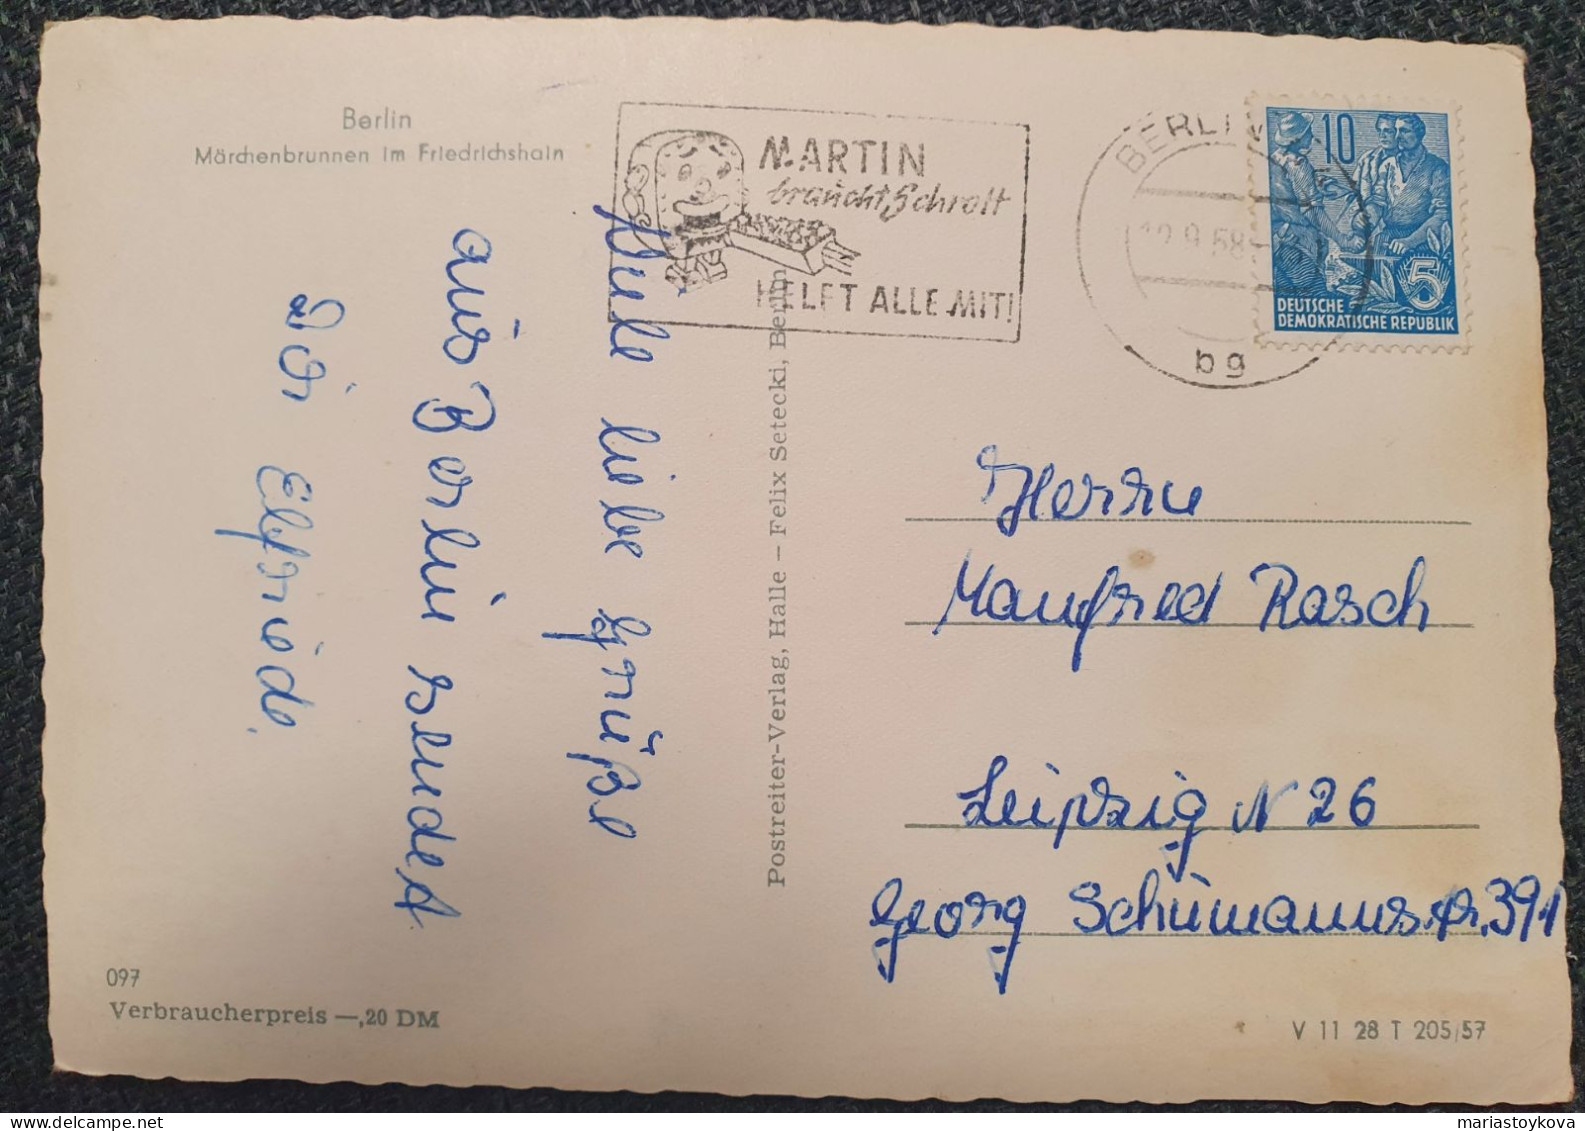 Berlin
Märchenbrunnen im Friedrichshain
MARTIN
braucht Schrott
HELFT ALLE MIT!
BERLIN
bg
10
5
DEUTSCHE
DEMOKRATISCHE REPUBLIK
Viele liebe Grüße
aus Berlin sendet
Dir Elfriede.
Postreiter-Verlag, Halle – Felix Setecki, Berlin
Herrn
Manfred Rasch
Leipzig N 26
Georg Schumannstr. 391
097
Verbraucherpreis —,20 DM
V 11 28 T 205/57
mariastoykova